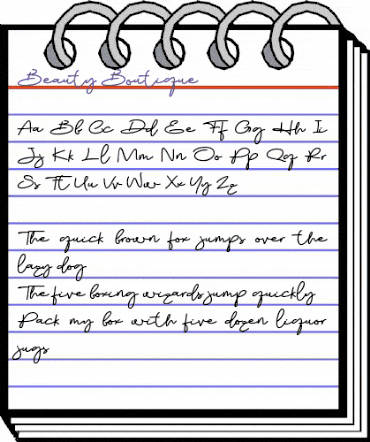 Beauty Boutique
Aa Bb Cc Dd Ee Ff Gg Hh Ii
Jj Kk Ll Mm Nn Oo Pp Qq Rr
Ss Tt Uu Vv Ww Xx Yy Zz
The quick brown fox jumps over the
lazy dog
The five boxing wizards jump quickly
Pack my box with five dozen liquor
jugs